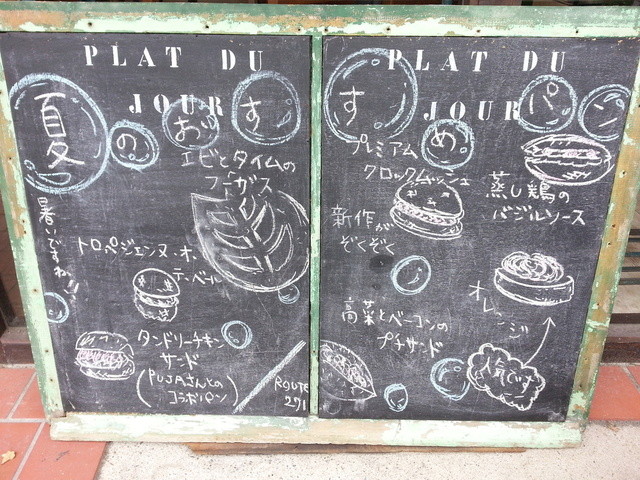 PLAT DU
JOUR
夏のおす
エビとタイムの
フーガス
暑いですね!!
トロペジェンヌ・オ・
テ・ベール
タンドリーチキン
サンド
(PUJAさんとの
コラボパン)
ROUTE
271
PLAT DU
JOUR
すめパン
プレミアム
クロックムッシュ
蒸し鶏の
バジルソース
新作が
ぞくぞく
オレンジ
高菜とベーコンの
プチサンド
人気です